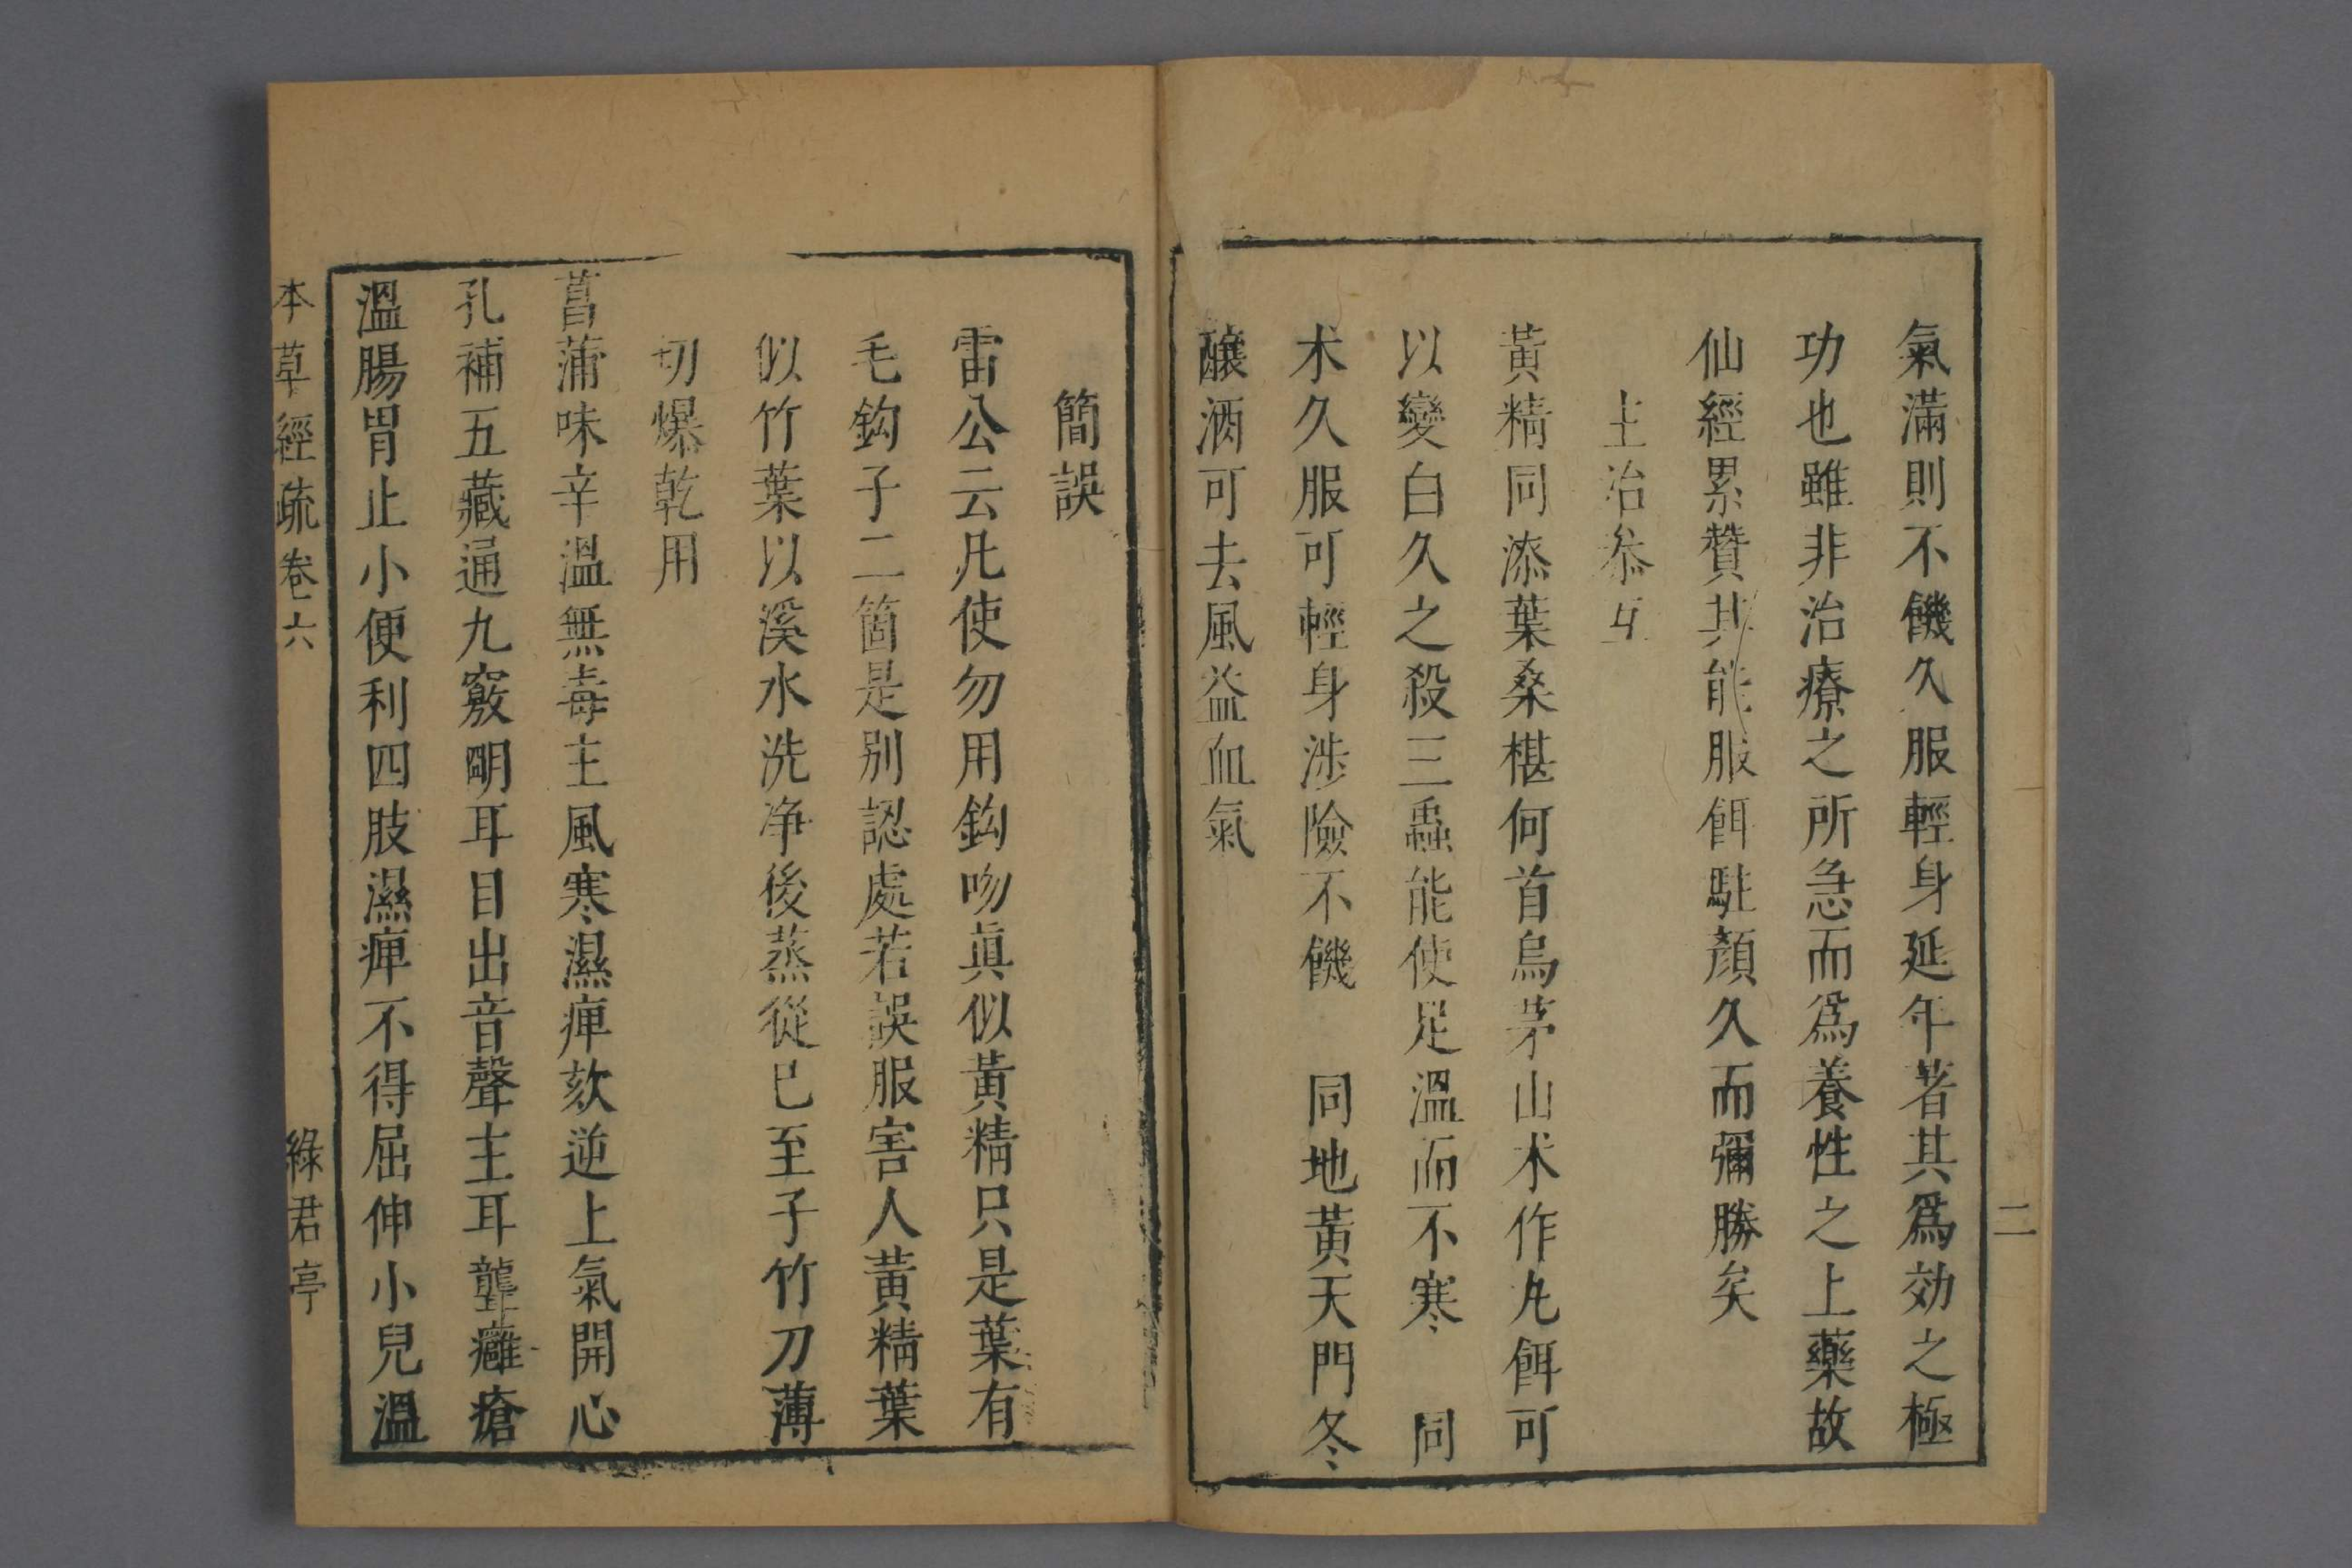 氣滿則不饑久服輕身延年著其爲効之極
功也雖非治療之所急而爲養性之上藥故
仙經累贊其能服餌駐顏久而彌勝矣
主治叅互
黃精同漆葉桑椹何首烏茅山术作丸餌可
以變白久之殺三蟲能使足溫而不寒　同
术久服可輕身涉險不饑　同地黃天門冬
釀酒可去風益血氣
二
簡誤
雷公云凡使勿用鈎吻眞似黃精只是葉有
毛鈎子二箇是别認處若誤服害人黃精葉
似竹葉以溪水洗净後蒸從巳至子竹刀薄
切爆乾用
菖蒲味辛溫無毒主風寒濕痺欬逆上氣開心
孔補五藏通九竅明耳目出音聲主耳聾癰瘡
溫腸胃止小便利四肢濕痺不得屈伸小兒溫
本草經疏卷六
綠君亭